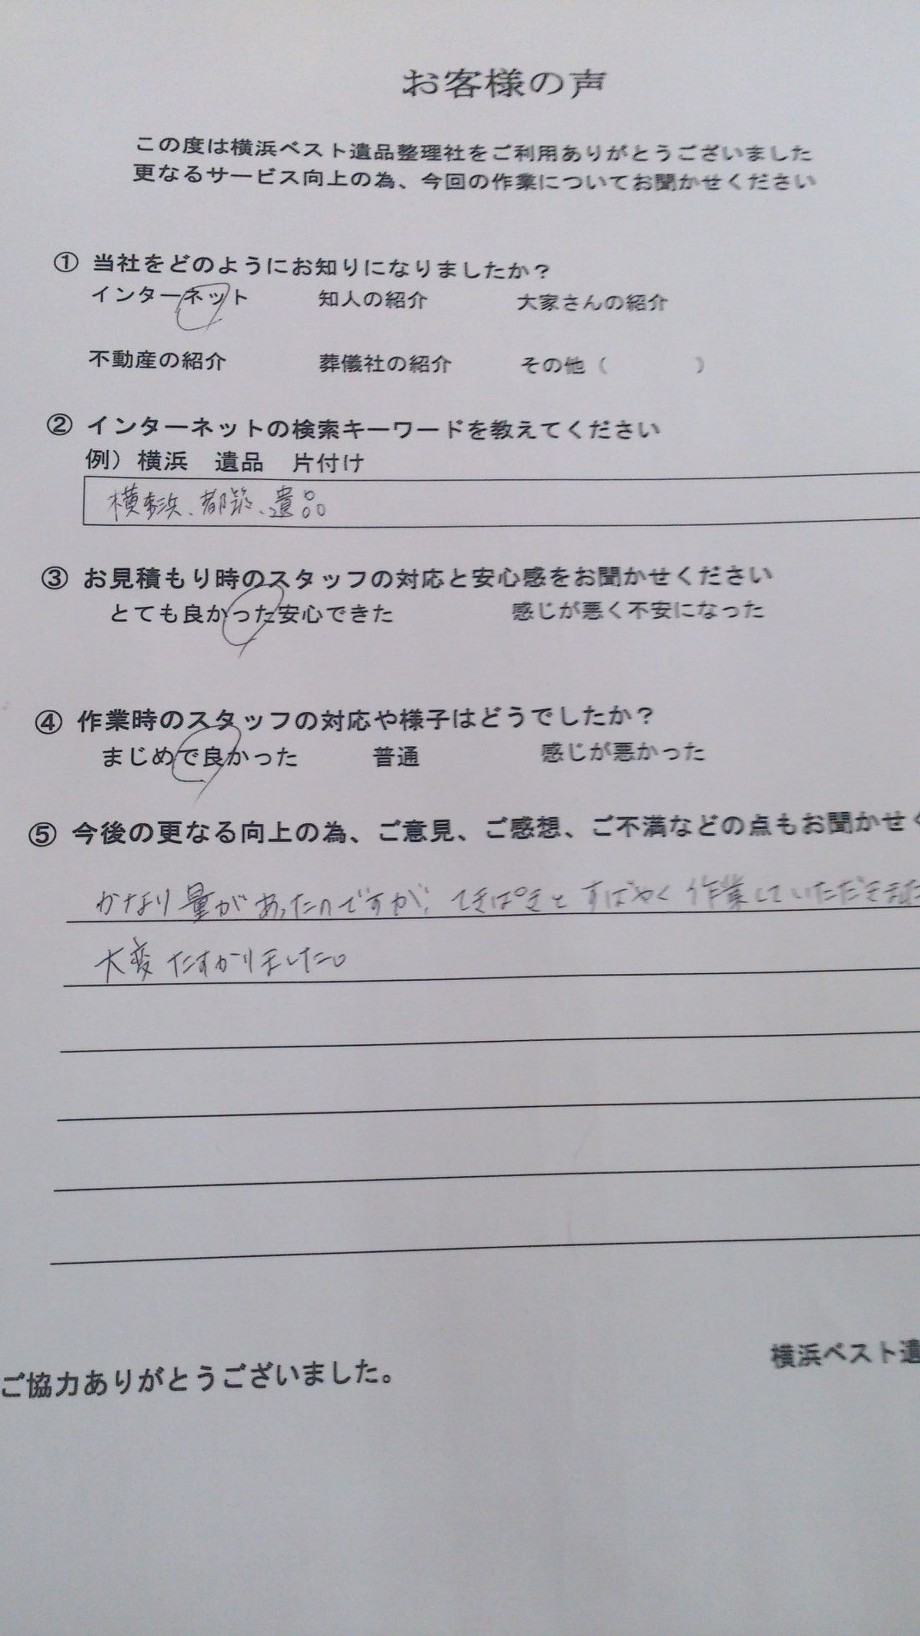 お客様の声
この度は横浜ベスト遺品整理社をご利用ありがとうございました
更なるサービス向上の為、今回の作業についてお聞かせください
① 当社をどのようにお知りになりましたか？
インターネット 知人の紹介 大家さんの紹介
不動産の紹介 葬儀社の紹介 その他（ ）
② インターネットの検索キーワードを教えてください
例）横浜 遺品 片付け
横浜、都築、遺品
③ お見積もり時のスタッフの対応と安心感をお聞かせください
とても良かった安心できた 感じが悪く不安になった
④ 作業時のスタッフの対応や様子はどうでしたか？
まじめで良かった 普通 感じが悪かった
⑤ 今後の更なる向上の為、ご意見、ご感想、ご不満などの点もお聞かせく
かなり量があったのですが、てきぱきとすばやく作業していただきまし
大変たすかりました。
横浜ベスト遺
ご協力ありがとうございました。